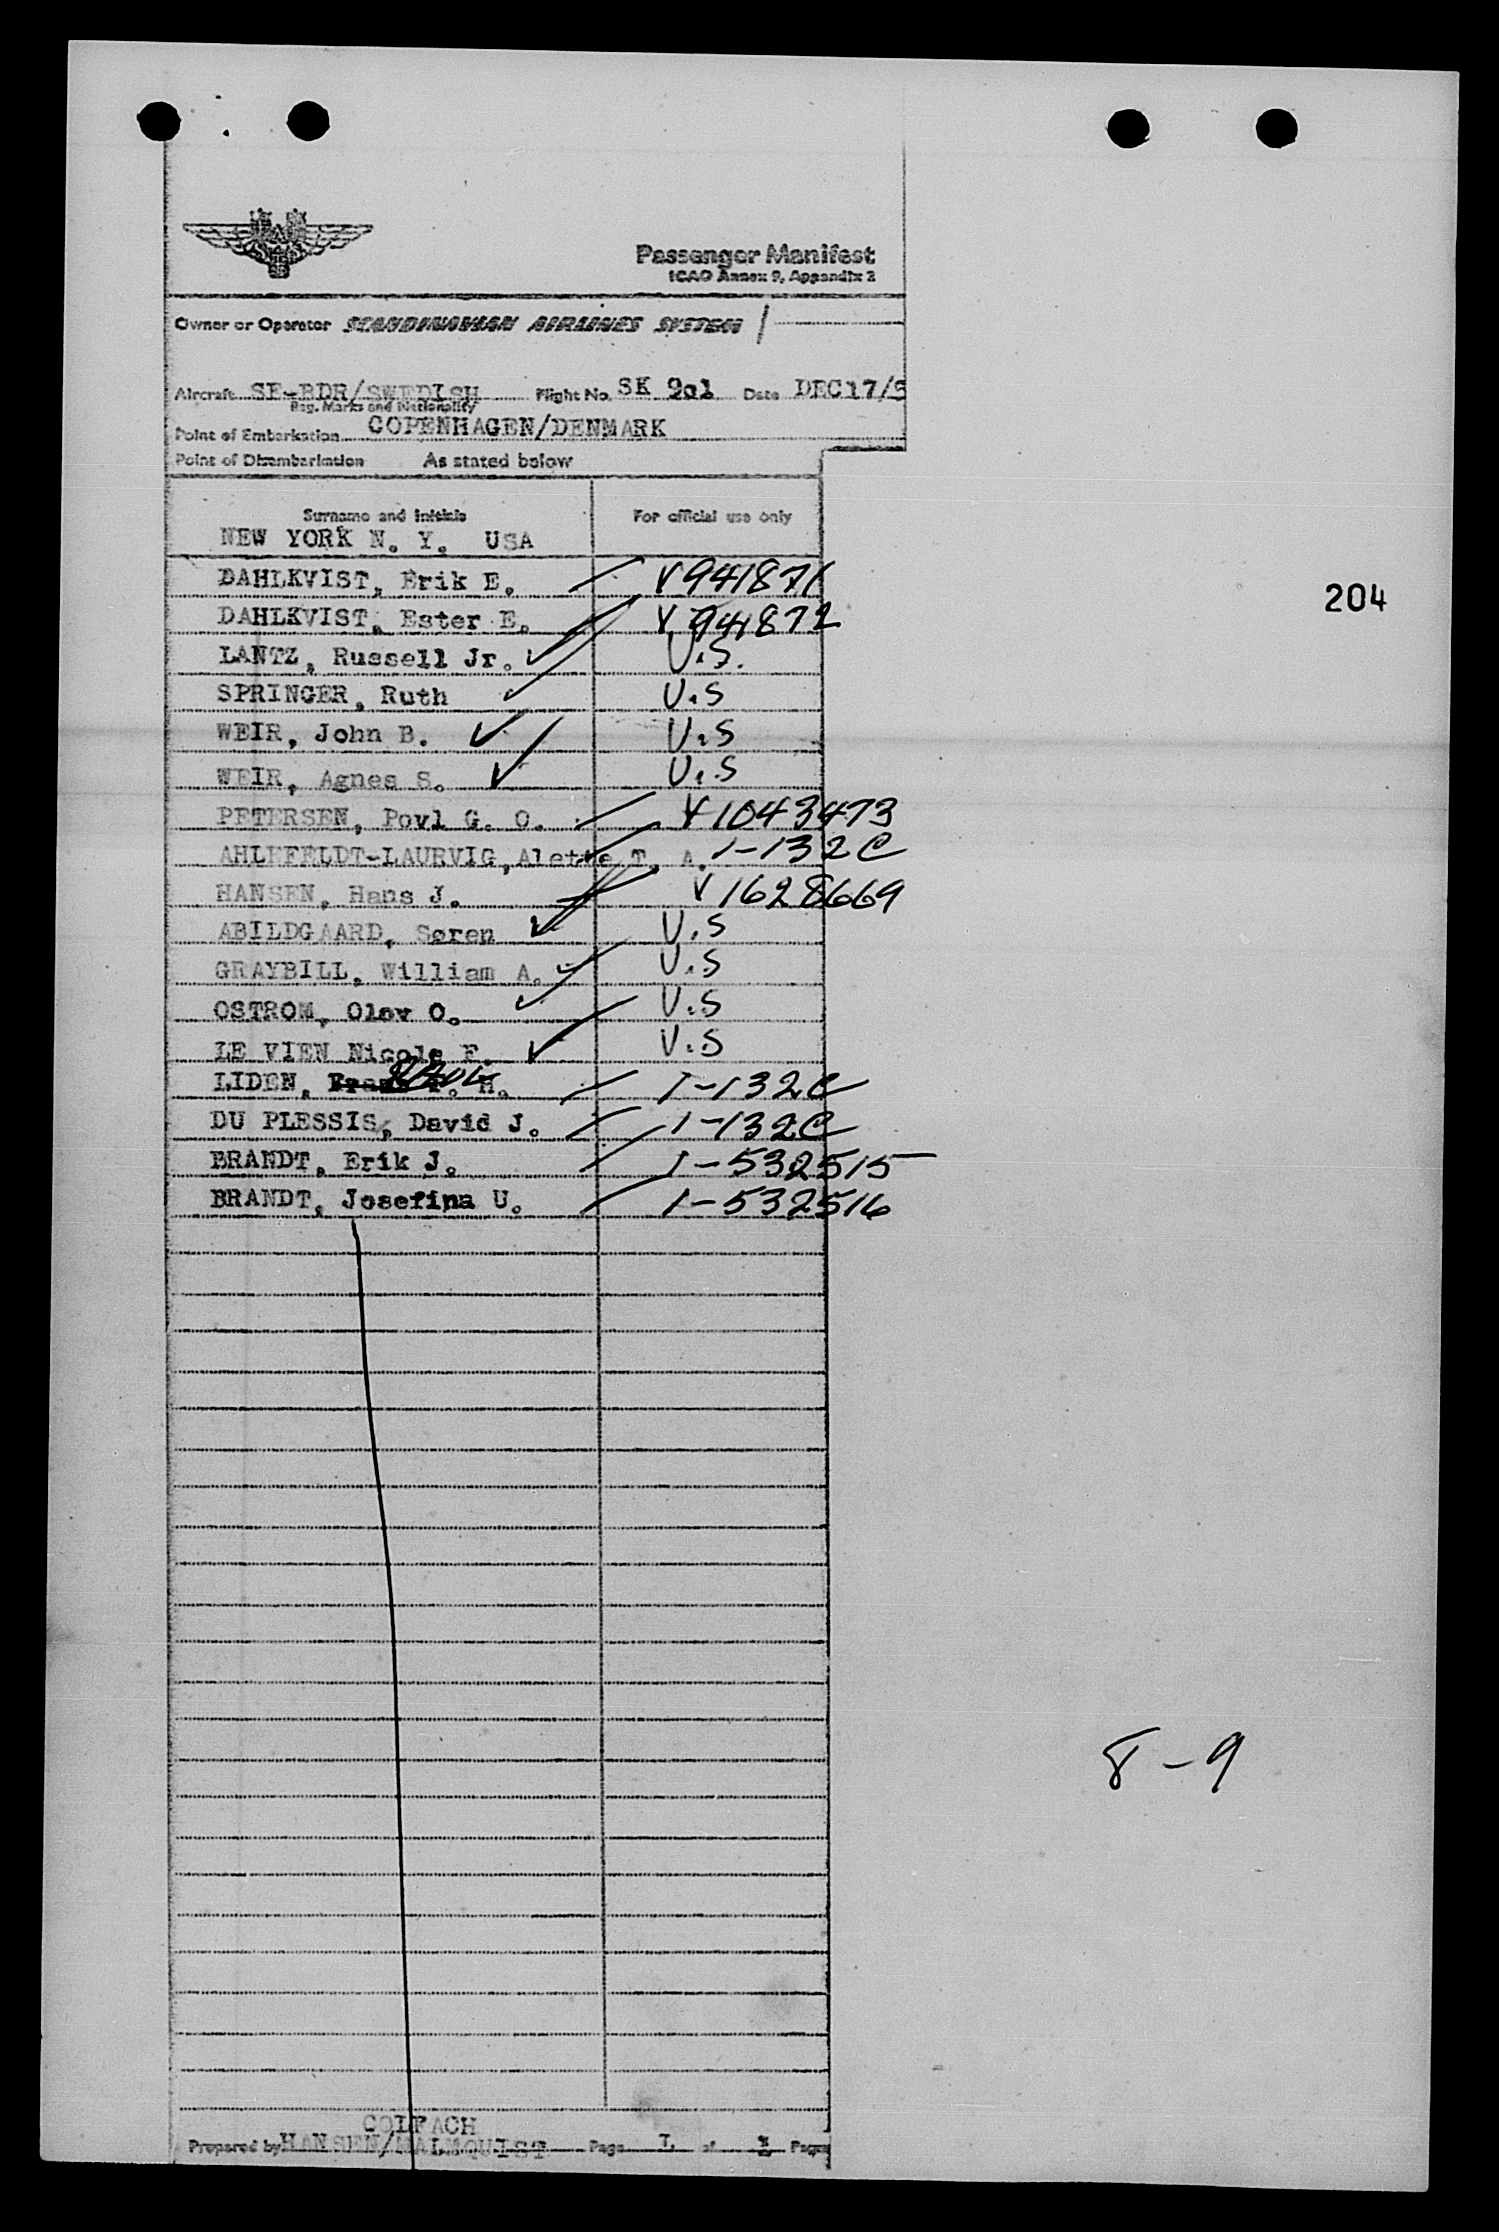 Passenger Manifest
ICAO Annex 9, Appendix 2
Owner or Operator SCANDINAVIAN AIRLINES SYSTEM
Aircraft SE-BDR/SWEDISH Flight No. SK 901 Date DEC17/5
Reg. Marks and Nationality
Point of Embarkation COPENHAGEN/DENMARK
Point of Disembarkation As stated below
Surname and initials For official use only
NEW YORK N. Y. USA
DAHLKVIST, Erik E. V 941871
DAHLKVIST, Ester E. V 941872
204
LANTZ, Russell Jr. U.S.
SPRINGER, Ruth U.S
WEIR, John B. U.S
WEIR, Agnes S. U.S
PETERSEN, Povl G. O. V 1043473
AHLEFELDT-LAURVIG, Alette T. A. I-132C
HANSEN, Hans J. V 1628669
ABILDGAARD, Søren U.S
GRAYBILL, William A. U.S
OSTROM, Olov O. U.S
LE VIEN Nicole F. U.S
LIDEN, H. I-132C
DU PLESSIS, David J. I-132C
BRANDT, Erik J. I-532515
BRANDT, Josefina U. I-532516
8-9
COLFACH
Prepared by HANSEN/MALMQUIST Page I of Pages